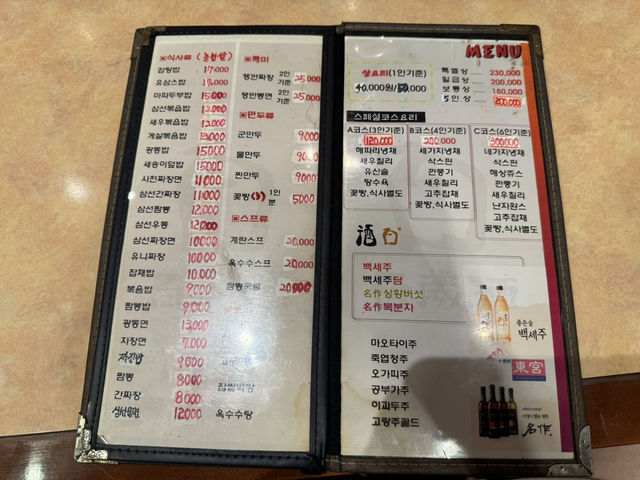 ▣식사류 (농협쌀)
잡탕밥 17,000
유삼스밥
마파두부밥 15,000
삼선볶음밥 12,000
새우볶음밥 12,000
게살볶음밥 13,000
광동밥 15000
새송이덮밥 15000
사천짜장면 11000
삼선간짜장 11000
삼선짬뽕 12,000
삼선우동 12,000
삼선짜장면 10000
유니짜장 10000
잡채밥 10,000
볶음밥 9,000
짬뽕밥 9,000
광동면 13,000
자장면 7,000
짜장밥 9000
짬뽕 8000
간짜장 8000
삼선울면 12000
▣특미
쟁반짜장 2인기준 25,000
쟁반짬면 2인기준 25,000
▣만두류
군만두 9000
물만두 9000
찐만두 9000
꽃빵 1인분 5000
▣스프류
계란스프 20,000
옥수수스프 20,000
짬뽕국물 20,000
찹쌀떡탕
옥수수탕
MENU
상요리(1인기준)
40,000원/50,000
특별상 ..... 230,000
일급상 ..... 200,000
보통상 ..... 180,000
5인상 ..... 200,000
스페셜코스요리
A코스(3인기준)
120,000
해파리냉채
새우칠리
유산슬
탕수육
꽃빵,식사별도
B코스(4인기준)
200,000
세가지냉채
삭스핀
깐풍기
새우칠리
고추잡채
꽃빵,식사별도
C코스(6인기준)
300000
네가지냉채
삭스핀
해상쥬스
깐풍기
새우칠리
난자완스
고추잡채
꽃빵,식사별도
酒
백세주
백세주담
名作상황버섯
名作복분자
좋은술
백세주
마오타이주
죽엽청주
오가피주
공부가주
이과두주
고량주골드
東宮
名作